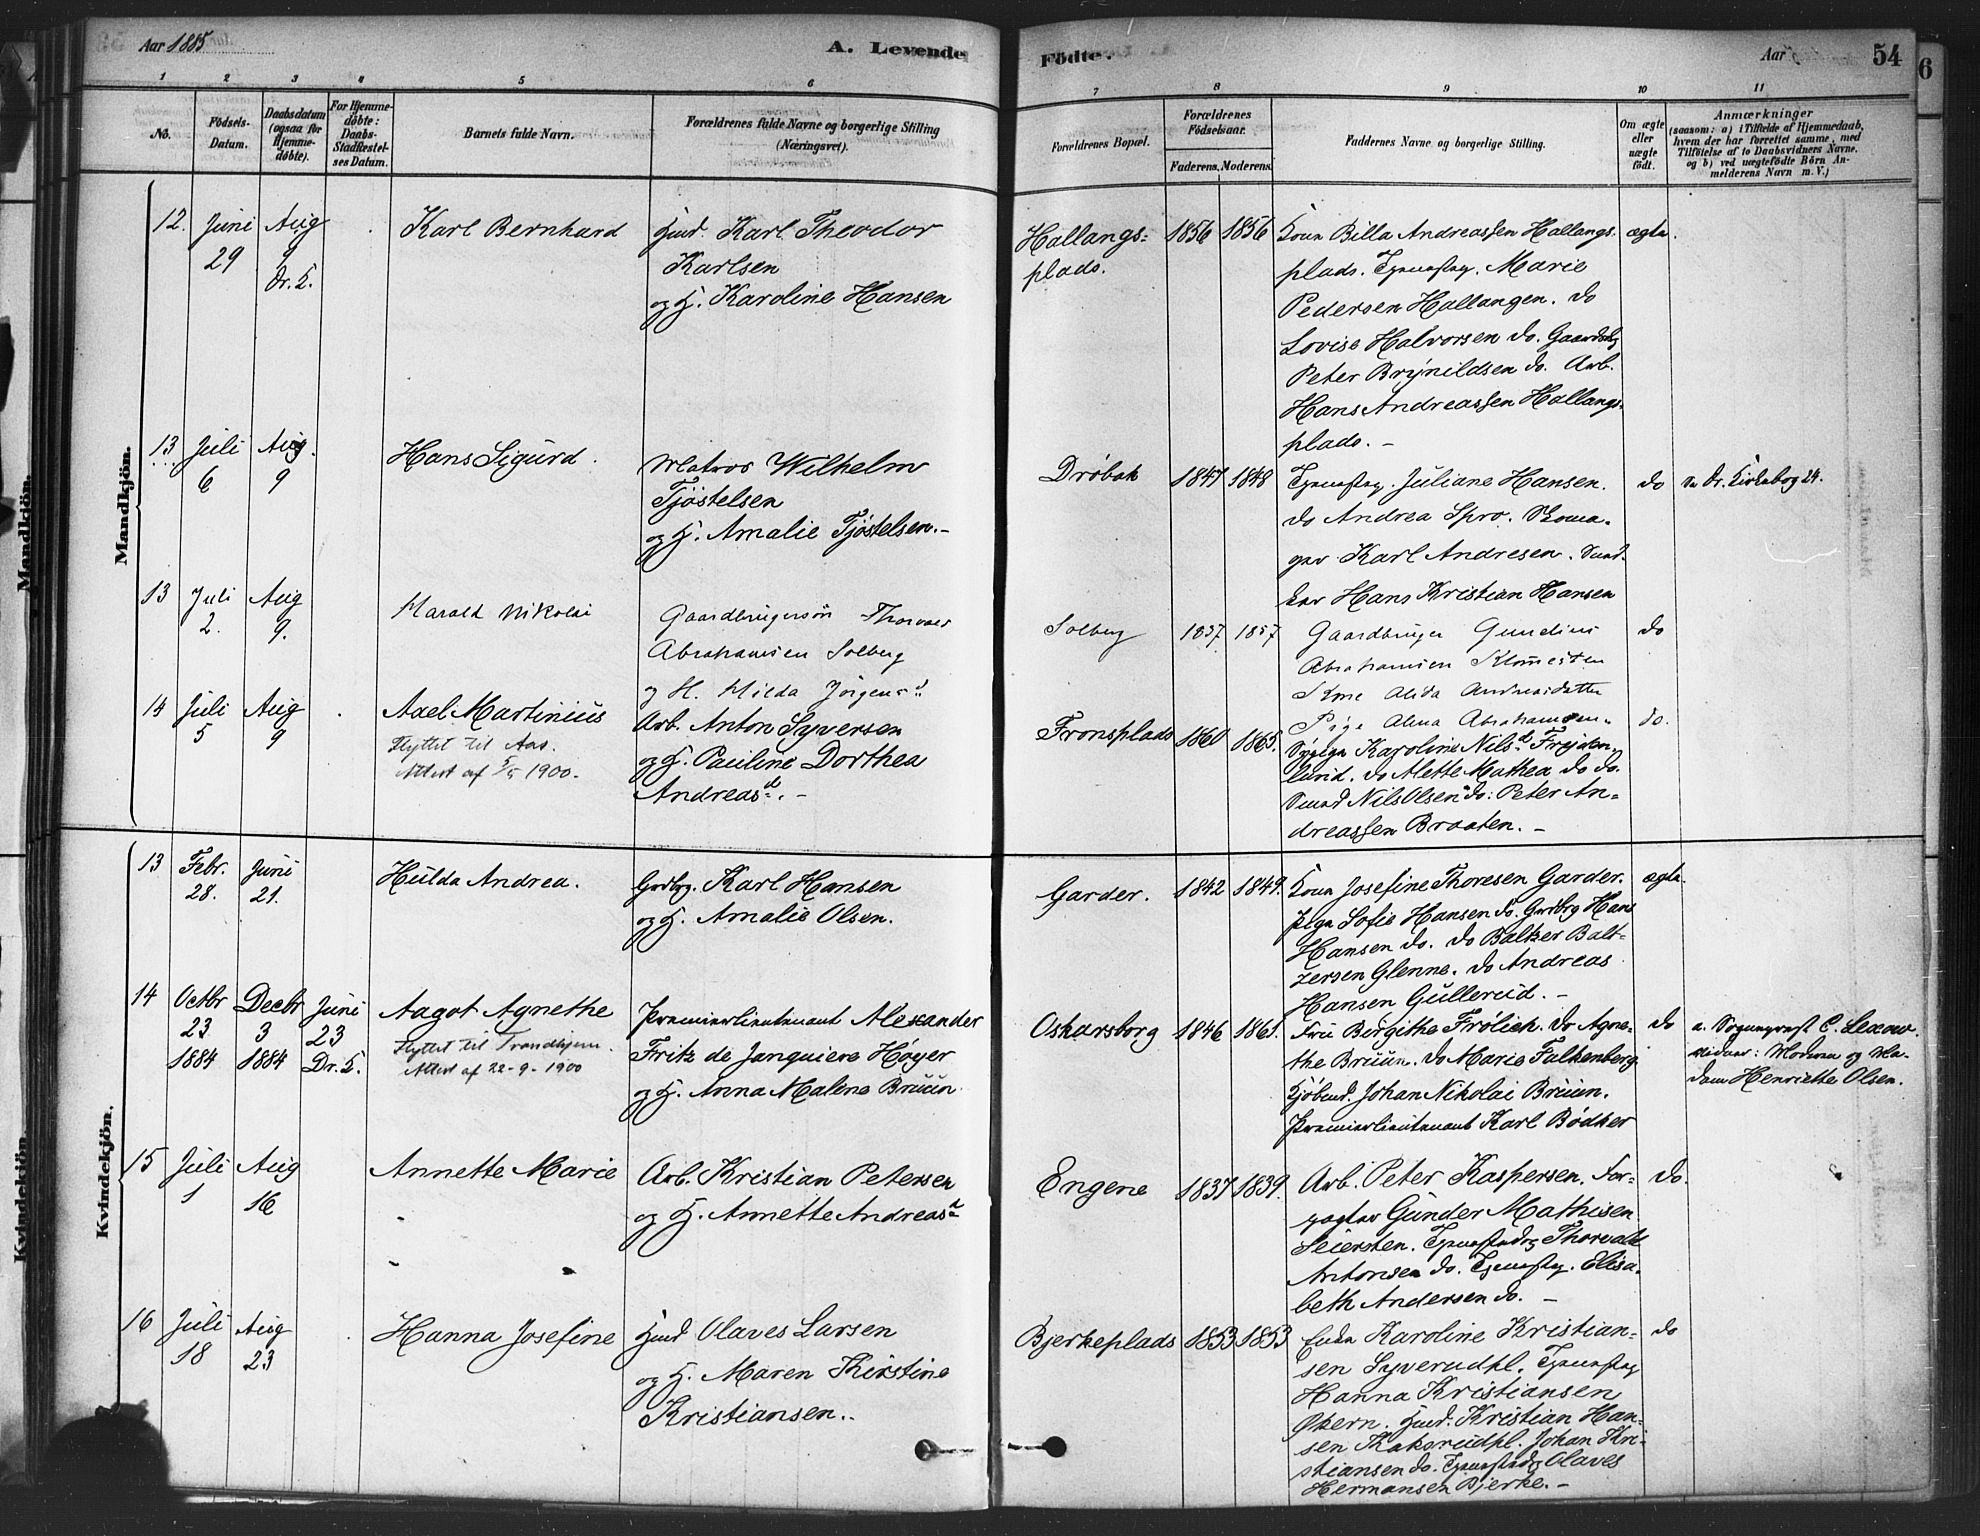 Aar 1885
A. Levende Födte.
Aar
54
6
1 2 3 4 5 6 7 8 9 10 11
No.
Födsels-Datum.
Daabsdatum (ogsaa för Hjemme-döbte).
For Hjemme-döbte: Daabs-Stadfæstel-ses Datum.
Barnets fulde Navn.
Forældrenes fulde Navne og borgerlige Stilling (Næringsvei).
Forældrenes Bopæl.
Forældrenes Födselsaar.
Faderens. Moderens.
Faddernes Navne og borgerlige Stilling.
Om ægte eller uægte födt.
Anmærkninger
(saasom: a) i Tilfælde af Hjemmedaab,
hvem der har forrettet samme, med
Tilföielse af to Daabsvidners Navne.
og b) ved uægtefödte Börn An-
melderens Navn m. V.)
Mandkjön.
12. Juni 29 Aug 9 Dr. K.
Karl Bernhard
Hmd. Karl Theodor
Karlsen
og H. Karoline Hansen
Hallangs-
plads.
1856 1856
Kone Billa Andreassen Hallangs-
plads. Tjenestpg. Marie
Pedersen Hallangen. do
Lovise Halvorsen do. Gaardbrg
Peter Brynildsen do. Arb.
Hans Andreassen Hallangs-
plads. –
ægte.
13 Juli 6 Aug. 9
Hans Sigurd.
Matros Wilhelm
Tjöstelsen
og H. Amalie Tjöstelsen. –
Dröbak
1847 1848
Tjenestpg. Juliane Hansen.
do Andrea Spro. Skoma-
ger Karl Andresen. Sned-
ker Hans Kristian Hansen
do
Se Dr. Kirkebog 24.
13 Juli 2. Aug 9.
Harald Nikolai
Gaardbrugersön Thorvald
Abrahamsen Solberg
og H. Hilda Jörgensd
Solberg
1857 1857
Gaardbruger Gundius
Abrahamsen
Alida Andreasdatter
Pige Alma Abrahamsen.
do
14 Juli 5 Aug 9
Axel Martinius
Flyttet til Aas.
Attest af 5/5 1900.
Arb. Anton Syversen
og H. Pauline Dorthea
Andreasd. –
Fronsplads
1860 1865.
Sypige Karoline Nilsd Fröjden-
lund. do Alette Mathea do do.
Smed Nils Olsen do: Peter An-
dreassen Braaten. –
do.
Kvindekjön.
13 Febr. 28. Juni 21.
Hulda Andrea.
Grdbrg. Karl Hansen
og H. Amalie Olsen.
Garder.
1842 1849.
Kone Josefine Thoresen Garder.
Pige Sofie Hansen do. Grdbrg Hans
Hansen do. do Baltzer Balt-
zersen Glenne. do Andreas
Hansen Gullerud. –
ægte.
14 Octbr 23 1884 Decbr 3 1884 Juni 23 Dr. K.
Aagot Agnethe
Flyttet til Trondhjem.
Attest af 22-9-1900
Premierlieutenant Alexander
Fritz de Janquiere Höyer
og H. Anna Malene Bruun
Oskarsborg
1846 1861.
Fru Birgithe Frölich. do Agne-
the Bruun. do Marie Falkenberg
Kjöbmd. Johan Nikolai Bruun.
Premierlieutenant Karl Bödker
do
a. Sogneprest C. Lexow.
Vidner: Moderen og Ma-
dam Henriette Olsen.
15 Juli 1 Aug 16
Annette Marie
Arb. Kristian Petersen
og H. Annette Andreasd
Engene
1837 1839.
Arb. Peter Kaspersen. For-
pagter Gunder Mathisen
Seiersten. Tjenestedrg Thorvald
Antonsen do. Tjenestpg. Elisa-
beth Andersen do. –
do.
16 Juli 18 Aug 23
Hanna Josefine
Hmd Olaves Larsen
og H. Maren Kirstine
Kristiansen.
Bjerkeplads
1853 1853
Enke Karoline Kristian-
sen Syverudpl. Tjenestpg
Hanna Kristiansen
Økern. Hmd. Kristian Han-
sen Thaksrudpl. Johan Kri-
stiansen do. Tjenestedrg Olaves
Hermansen Bjerke. –
do